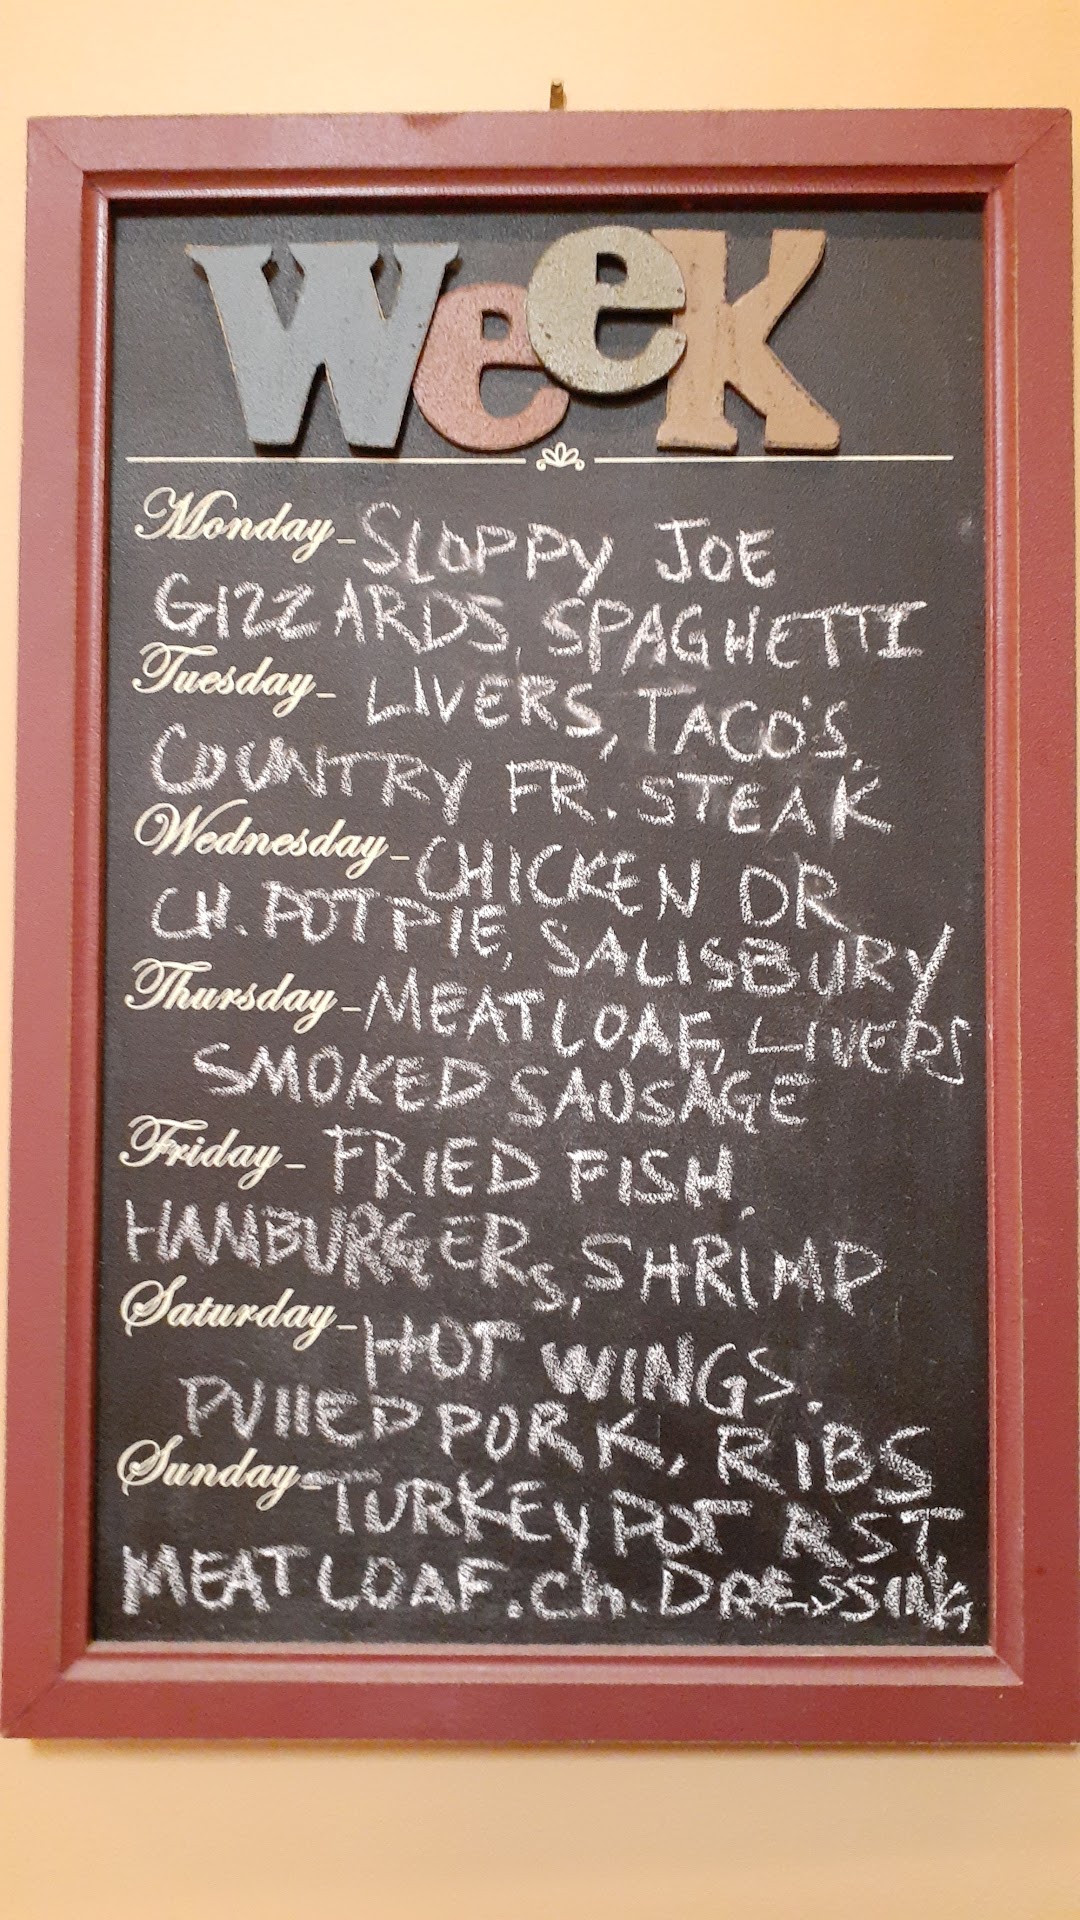 Week
Monday- SLOPPY JOE
GIZZARDS, SPAGHETTI
Tuesday- LIVERS, TACO'S,
COUNTRY FR. STEAK
Wednesday- CHICKEN OR
CH. POT PIE, SALISBURY
Thursday- MEATLOAF, LIVERS
SMOKED SAUSAGE
Friday- FRIED FISH,
HAMBURGERS, SHRIMP
Saturday- HOT WINGS,
PULLED PORK, RIBS
Sunday- TURKEY POT RST,
MEATLOAF. Ch. DRESSING